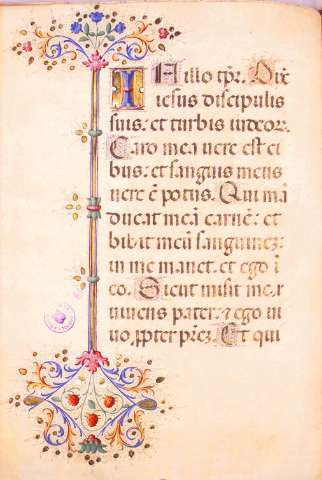 IN illo tp̄r. Dix̄
iesus discipulis
suis: et turbis iudeoꝝ.
Caro mea uere est ci
bus: et sanguis meus
uere ē potus. Qui mā
ducat meā carnē: et
bibit meū sanguinez:
in me manet. et ego ī
eo. Sicut misit me
uiuens pater: ⁊ ego ui
uo ꝓpter prēz. Et qui